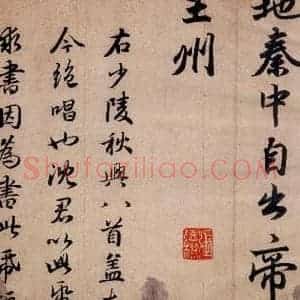 地秦中自古帝
王州
右少陵秋興八首盖
今絶唱也沈君以此
求書因為書此
Shufaziliao.com